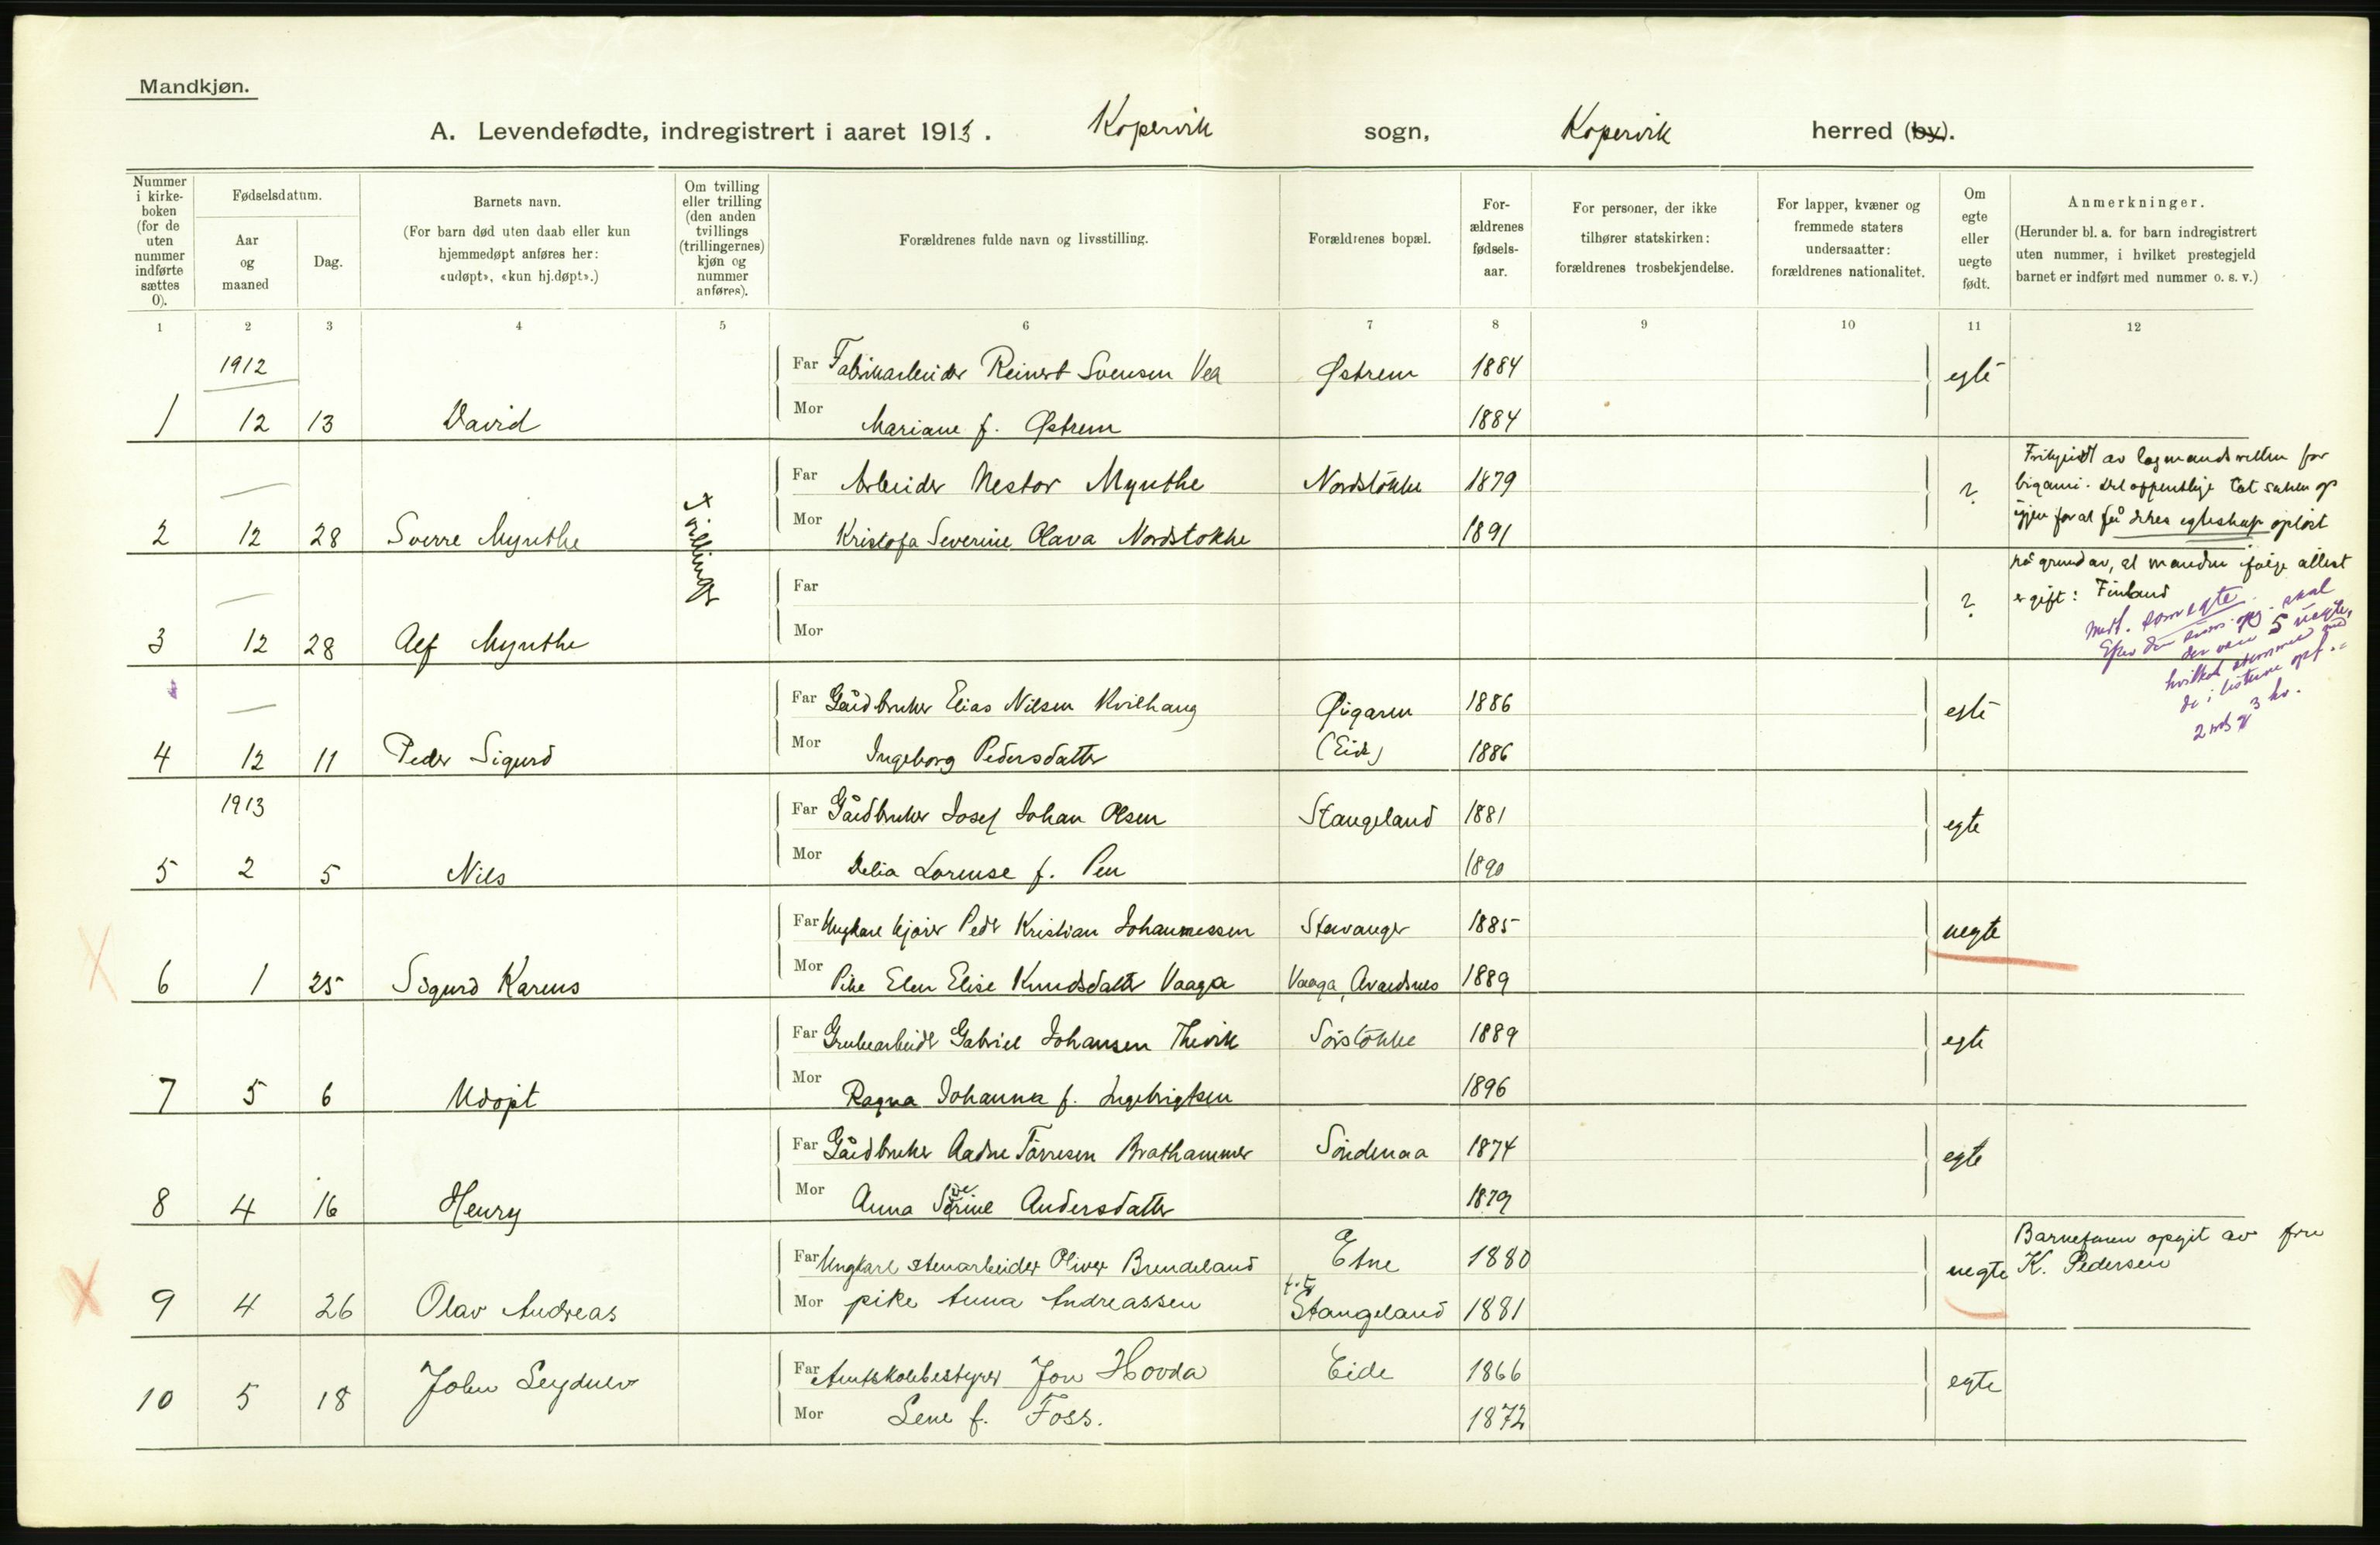 Mandkjøn.
A. Levendefødte, indregistrert i aaret 1913. Kopervik sogn, Kopervik herred (by).
Nummer i kirke-boken (for de uten nummer indførte sættes 0).
Fødselsdatum.
Aar og maaned
Dag.
Barnets navn.
(For barn død uten daab eller kun hjemmedøpt anføres her: «udøpt», «kun hj.døpt».)
Om tvilling eller trilling (den anden tvillings (trillingernes) kjøn og nummer anføres).
Forældrenes fulde navn og livsstilling.
Forældrenes bopæl.
For-ældrenes fødsels-aar.
For personer, der ikke tilhører statskirken: forældrenes trosbekjendelse.
For lapper, kvæner og fremmede staters undersaatter: forældrenes nationalitet.
Om egte eller uegte født.
Anmerkninger.
(Herunder bl. a. for barn indregistrert uten nummer, i hvilket prestegjeld barnet er indført med nummer o. s. v.)
1 2 3 4 5 6 7 8 9 10 11 12
1912
Far Fabrikarbeider Reinert Svensen Vea Østrem 1884 egte
1 12 13 David Mor Mariane f. Østrem 1884
Far Arbeider Nestor Mynthe Nordstökke 1879 ?
2 12 28 Sverre Mynthe Tvillinger Mor Kristofa Severine Olava Nordstokke 1891
Frikjendt av lagmandsretten for
bigami. Det offentlige tat saken op
igjen for at få deres egteskap opløst
på grund av, at manden ifølge attest
er gift i Finland
Far ?
3 12 28 Alf Mynthe Mor
medt. som egte.
Efter den skal
der være 5 uegte,
hvilket stemmer med
de i listene opf.
2 3 kv.
Far Gårdbruker Elias Nilsen Kvilhaug Øigaren 1886 egte
4 12 11 Peder Sigurd Mor Ingeborg Pedersdatter (Eide) 1886
1913
Far Gårdbruker Josef Johan Olsen Stangeland 1881 egte
5 2 5 Nils Mor Delia Lorense f. Peu 1890
Far Ungkarl kjører Peder Kristian Johannessen Stavanger 1885 uegte
6 1 25 Sigurd Karens Mor Pike Elen Elise Knudsdatter Vaaga Vaaga, Avaldsnes 1889
Far Grubearbeider Gabriel Johansen Thevik Sörstökke 1889 egte
7 5 6 Udøpt Mor Ragna Johanna f. Ingebrigtsen 1896
Far Gårdbruker Aadne Törresen Brathammer Söndenaa 1874 egte
8 4 16 Henry Mor Anna Serine Andersdatter 1879
Far Ungkarl stenarbeider Oliver Brendeland Etne 1880 uegte Barnefaren opgit av fru
K. Pedersen
9 4 26 Olav Andreas Mor pike Anna Andreassen Stangeland 1881
Far Amtskolebestyrer Jon Hovda Eide 1866 egte
10 5 18 John Seydner Mor Lene f. Foss. 1872